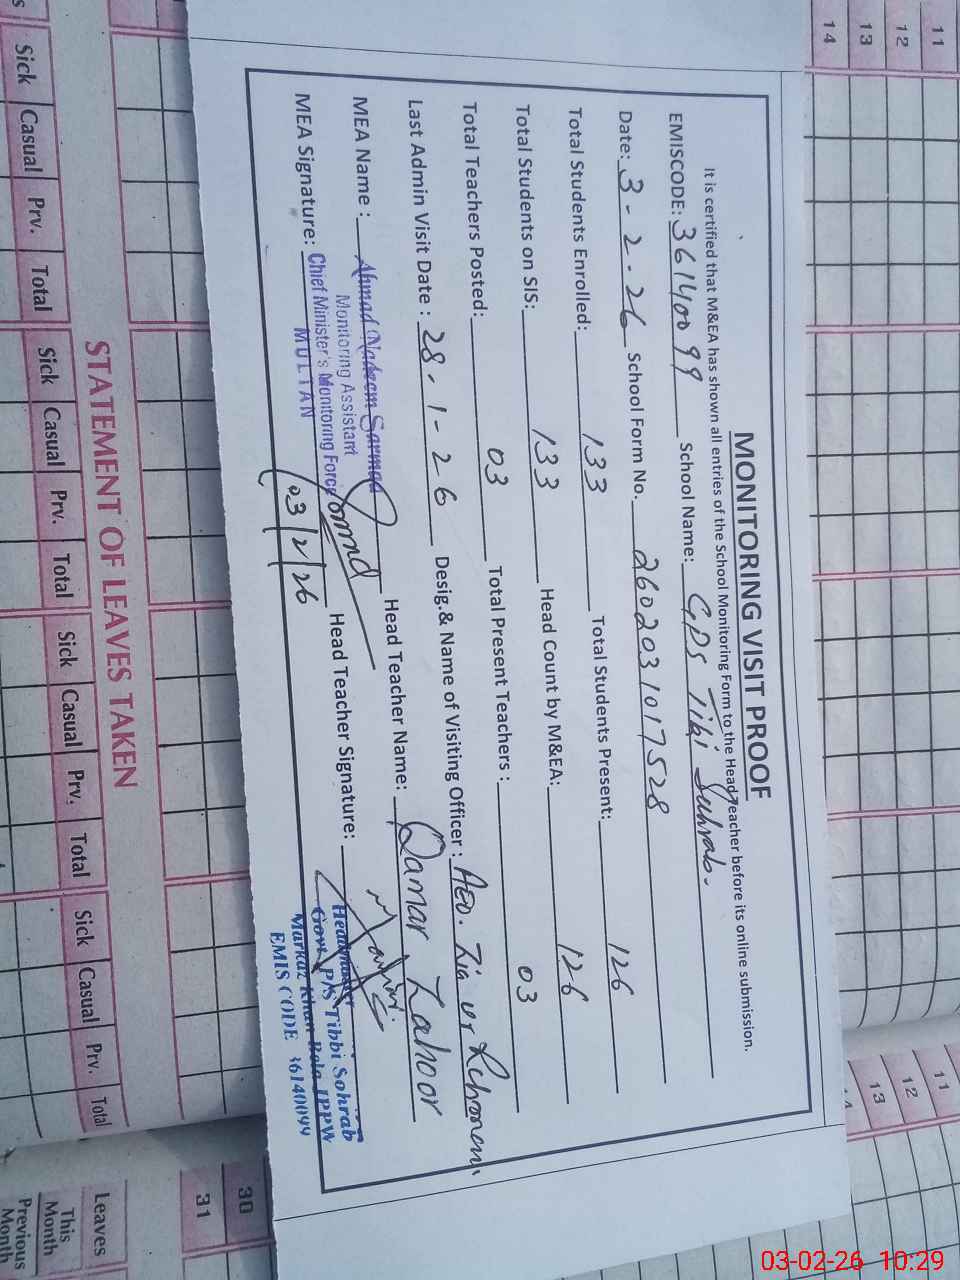 MONITORING VISIT PROOF
It is certified that M&EA has shown all entries of the School Monitoring Form to the Head Teacher before its online submission.
EMISCODE: 36140099 School Name: GPS Tibi Suhrab.
Date: 3-2-26 School Form No. 2602031017528
Total Students Enrolled: 133 Total Students Present: 126
Total Students on SIS: 133 Head Count by M&EA: 126
Total Teachers Posted: 03 Total Present Teachers: 03
Last Admin Visit Date: 28-1-26 Desig.& Name of Visiting Officer: AEO. Zia ur Rehman
MEA Name: Ahmad Nadeem Sarmad Head Teacher Name: Qamar Zahoor
Monitoring Assistant
MEA Signature: Chief Minister's Monitoring Force Head Teacher Signature:
MULTAN
03/2/26
Headmaster
Govt. P/S Tibbi Sohrab
Markaz Khan Bela LPPW
EMIS CODE 36140099
STATEMENT OF LEAVES TAKEN
Sick Casual Prv. Total Sick Casual Prv. Total Sick Casual Prv. Total Sick Casual Prv. Total
Sick Casual Prv. Total
11
12
13
14
11
12
13
14
30
31
Leaves
This Month
Previous Month
03-02-26 10:29